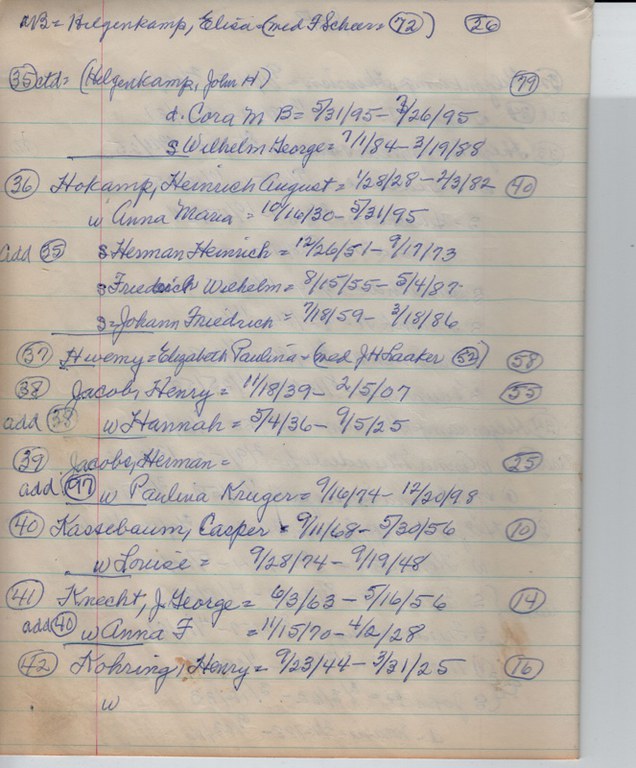 NB = Helgenkamp, Elisa - (med F Scheer = 72) 26
35 ctd = (Helgenkamp, John H) 79
d. Cora M B = 5/31/95 - 7/26/95
S Wilhelm George = 7/1/84 - 3/19/88
36 Hokamp, Heinrich August = 1/28/28 - 2/3/82 40
w Anna Maria = 10/16/30 - 5/31/95
add 35 S Herman Heinrich = 12/26/51 - 9/17/73
S Friedrich Wilhelm = 8/15/55 - 5/4/87
S = Johann Friedrich = 7/18/59 - 3/18/86
37 Hwemy = Elizabeth Paulina - (med J H Laaker 52) 58
38 Jacobs, Henry = 11/18/39 - 2/5/07 55
add 38 w Hannah = 5/4/36 - 9/5/25
39 Jacobs, Herman = 25
add 97 w Paulina Kruger = 9/16/74 - 12/20/98
40 Kassebaum, Casper = 9/11/68 - 5/30/56 10
w Louise = 9/28/74 - 9/19/48
41 Knecht, J. George = 6/3/63 - 5/16/56 14
add 40 w Anna F = 11/15/70 - 4/2/28
42 Kohring, Henry = 9/23/44 - 3/31/25 16
w